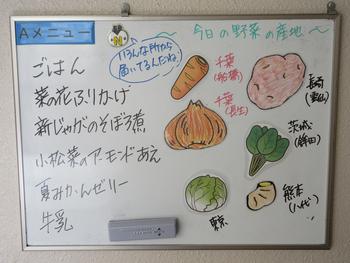 Aメニュー
ごはん
菜の花ふりかけ
新じゃがのそぼろ煮
小松菜のアーモンドあえ
夏みかんゼリー
牛乳
いろんな所から
届いてるんだね
～今日の野菜の産地～
千葉
(船橋)
千葉
(長生)
長崎
(雲仙)
茨城
(鉾田)
東京
熊本
(八代)